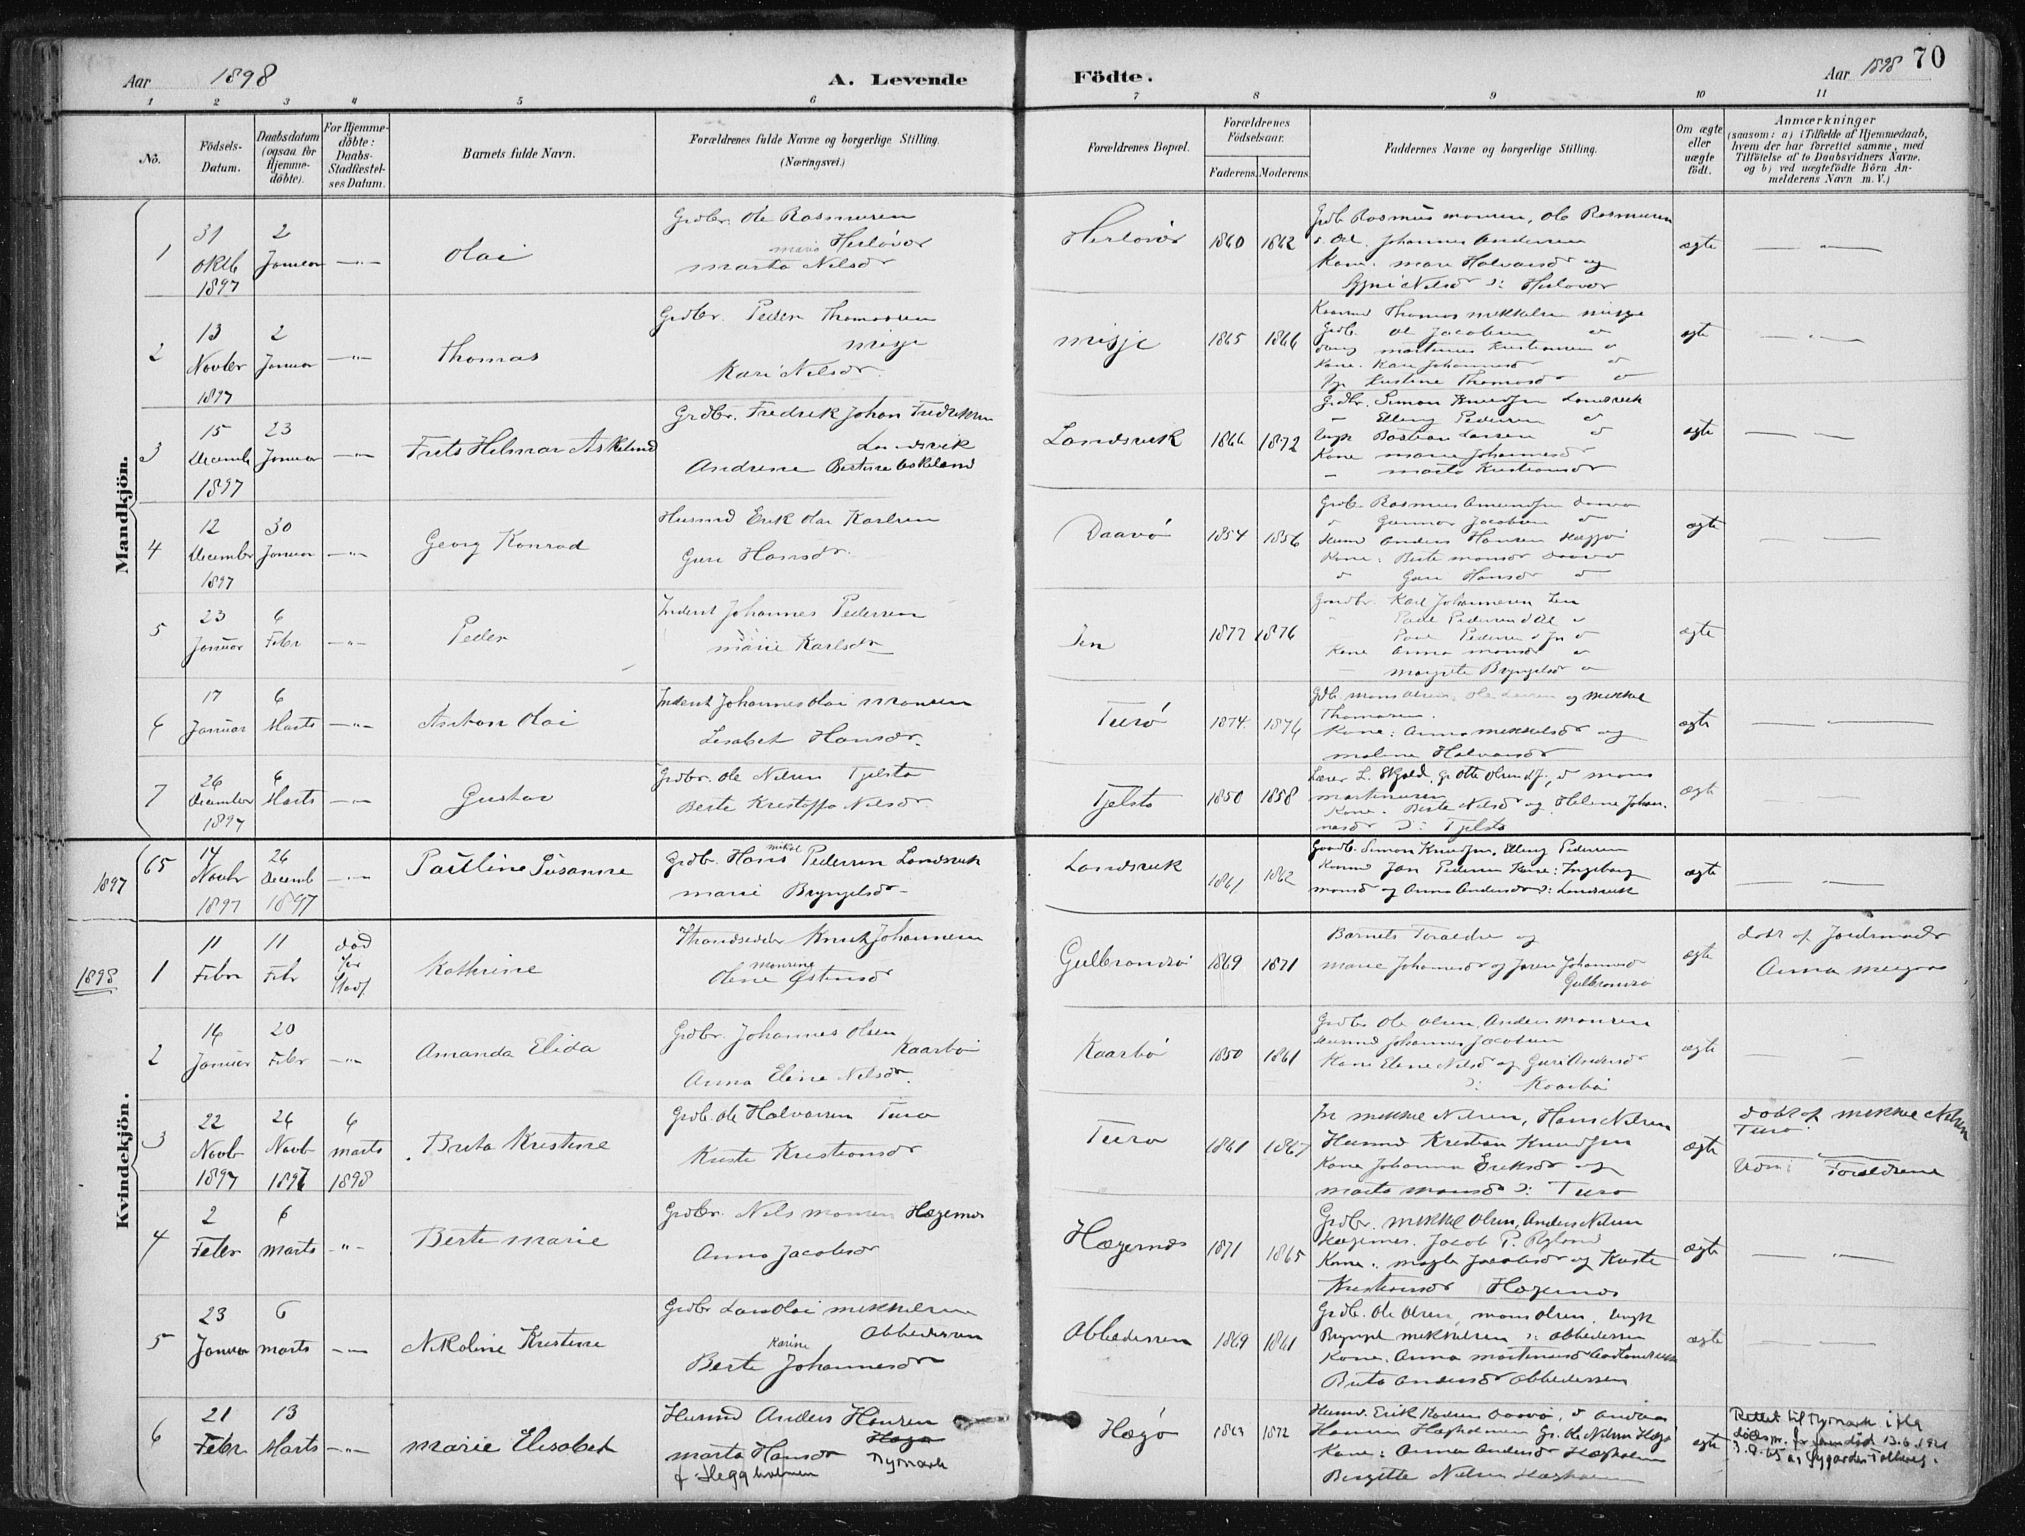 Aar 1898
A. Levende
Födte.
Aar 1898 70
1 2 3 4 5 6 7 8 9 10 11
No.
Födsels-Datum.
Daabsdatum (ogsaa for Hjemme-döbte).
For Hjemme-döbte: Daabs-Stadfæstel-ses Datum.
Barnets fulde Navn.
Forældrenes fulde Navne og borgerlige Stilling. (Næringsvei.)
Forældrenes Bopæl.
Forældrenes Födselsaar.
Faderens. Moderens.
Faddernes Navne og borgerlige Stilling.
Om ægte eller uægte födt.
Anmærkninger
(saasom: a) i Tilfælde af Hjemmedaab,
hvem der har forrettet samme, med
Tilföielse af to Daabsvidners Navne,
og b) ved uægtefödte Börn An-
melderens Navn m.V.)
Mandkjön.
1 31 Oktb 1897 2 Januar Olai
Grdbr. Ole Rasmussen
Herløvær
Marta Nilsdr
Herløvær 1860 1862
Grdb Rasmus Monsen, Ole Rasmussen
Johannes Andersen
Kone. Mari Halvorsdr og
Nilsdr Herløvær
ægte
2 13 Novbr 1897 2 Januar Thomas
Grdbr. Peder Thomassen
Misje
Kari Nilsdr.
Misje 1865 1866
Thomas Mikkelsen Misje
Grdb. Ole Jacobsen
Martinus Kristiansen
Kone. Kari Johannesdr
Kristine Thomasdr
ægte
3 15 Decemb 1897 23 Januar Frits Hilmar Askeland
Grdbr. Fredrik Johan Fredriksen
Landsvik
Andrine Bertine Askeland
Landsvik 1866 1872
Grdbr. Simon Knudsen Landsvik
Elling Pedersen
Ungk Bastian Larsen
Kone Marie Johannesdr
Marta Kristiansdr
ægte
4 12 December 1897 30 Januar Georg Konrad
Husmd Erik Olai Karlsen
Guri Hansdr.
Daavø 1854 1856
Grdb. Rasmus Amundsen Daavø
Gunnar Jacobsen
Husmd Anders Hansen Hægø
Kone: Berte Monsdr Daavø
Guri Hansdr
ægte
5 23 Januar 6 Febr Peder
Inderst Johannes Pedersen
Marie Karlsdr
1872 1876
Grdbr. Karl Johannesen
Paul Pedersen
Paul Pedersen
Kone Anna Monsdr
Margrete Bryngelsdr
ægte
6 17 Januar 6 Marts Anton Olai
Inderst Johannes Olai Monsen
Lisabet Hansdr.
Turø 1874 1876
Grdb. Mons Olsen, Ole Larsen og Mikkel
Thomasen.
Kone: Anna Mikkelsdr og
Malene Halvorsdr
ægte
7 26 December 1897 6 Marts Gustav
Grdbr. Ole Nilsen Tjelsto
Berte Kristoffa Nilsdr.
Tjelsto 1850 1858
Lærer L. Skjold, Otte Olsen Mons
Martinusen
Kone. Berte Nilsdr og Helene Johan-
nesdr Tjelsto
ægte
1897 65 14 Novbr 1897 26 Decemb 1897 Pauline Susanne
Grdb. Hans Mikal Pedersen Landsvik
Marie Bryngelsdr
Landsvik 1861 1862
Grdb. Simon Knudsen, Elling Pedersen
Jan Pedersen Kone: Ingeborg
Monsd og Anna Andersdr Landsvik
ægte
1898
Kvindekjön.
1 11 Febr 11 Febr død før Stadf Kathrine
Strandsidder Knut Johannesen
Olene Monsine Østensdr
Gulbrandsø 1869 1871
Barnets Forældre og
Marie Johannesdr og Johannesd
Gulbrandsø
ægte
døbt af Jordmoder
Anna
2 14 Januar 20 Febr Amanda Elida
Grdbr. Johannes Olsen
Kaarbø
Anna Eline Nilsdr.
Kaarbø 1850 1861
Grdbr Ole Olsen, Anders Monsen
Husmd Johannes Jacobsen
Kone Elene Nilsd og Guri Andersdr
Kaarbø
ægte
3 22 Novb 1897 26 Novb 1897 6 Marts 1898 Brita Kristine
Grdb. Ole Halvorsen Turø
Kriste Kristiansdr
Turø 1861 1867
Mikkel Nilsen, Hans Nilsen
Husmd Kristian Knudsen
Kone Johanna Eriksdr og
Marta Monsdr Turø
ægte
døbt af Mikkel Nilsen
Turø.
Vidn: Forældrene
4 2 Febr 6 Marts Berte Marie
Grdbr. Nils Monsen Hægernes
Anna Jacobsdr
Hægernes 1871 1865
Grdbr. Mikkel Olsen, Anders Nilsen
Hægernes. Jacob P. Ryland
Kone: Magla Jacobsdr og Kriste
Kristiansdr Hægernes
ægte
5 23 Januar 6 Marts Nikoline Kristine
Grdbr Lars Olai Mikkelsen
Obbedersen
Berte Karine Johannesdr
Obbedersen 1869 1861
Grdb. Ole Olsen, Mons Olsen, Ungk
Bryngel Mikkelsen Obbedersen
Kone. Anna Martinusd
Brita Andersdr Obbedersen
ægte
6 21 Febr 13 Marts Marie Elisabet
Husmd Anders Hansen
Hægø
Marta Hansdr Nymark
f Heggholmen
Hægø 1863 1872
Husmd. Erik Karlsen Daavø, Andreas
Hansen Hægholmen Gr. Ole Nilsen Hægø
Kone: Anna Andersdr Hægholmen
Birgitte Nilsen Hægholmen
ægte
Rettet til Nymark iflg
dødsm. 13.6.1921
3.9.65 av Øygarden Folkereg.